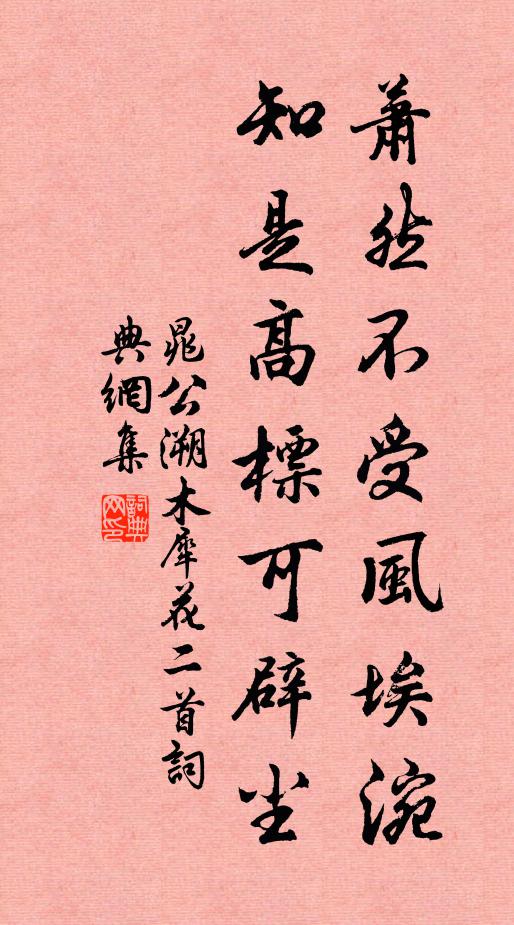 蕭然不受風埃涴
知是高標可辟塵
晁公溯木犀花二首詞
典網集
詞典网印